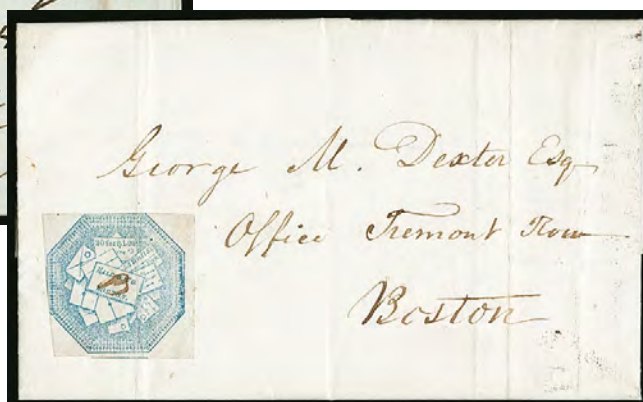 George M. Dexter Esq
Office Tremont Row
Boston